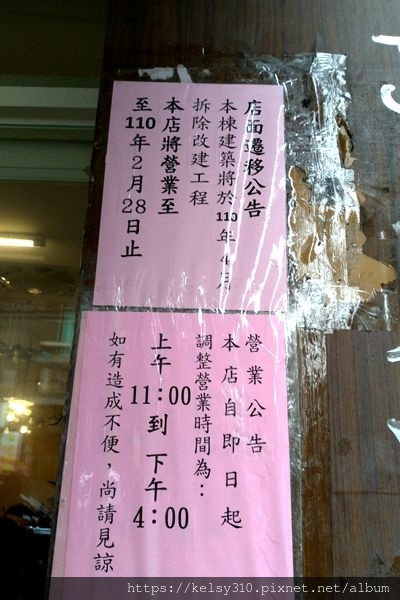 店面遷移公告
本棟建築將於110年4月
拆除改建工程
本店將營業至
至110年2月28日止
營業公告
本店自即日起
調整營業時間為：
上午
11：00到下午
4：00
如有造成不便，尚請見諒
https://kelsy310.pixnet.net/album